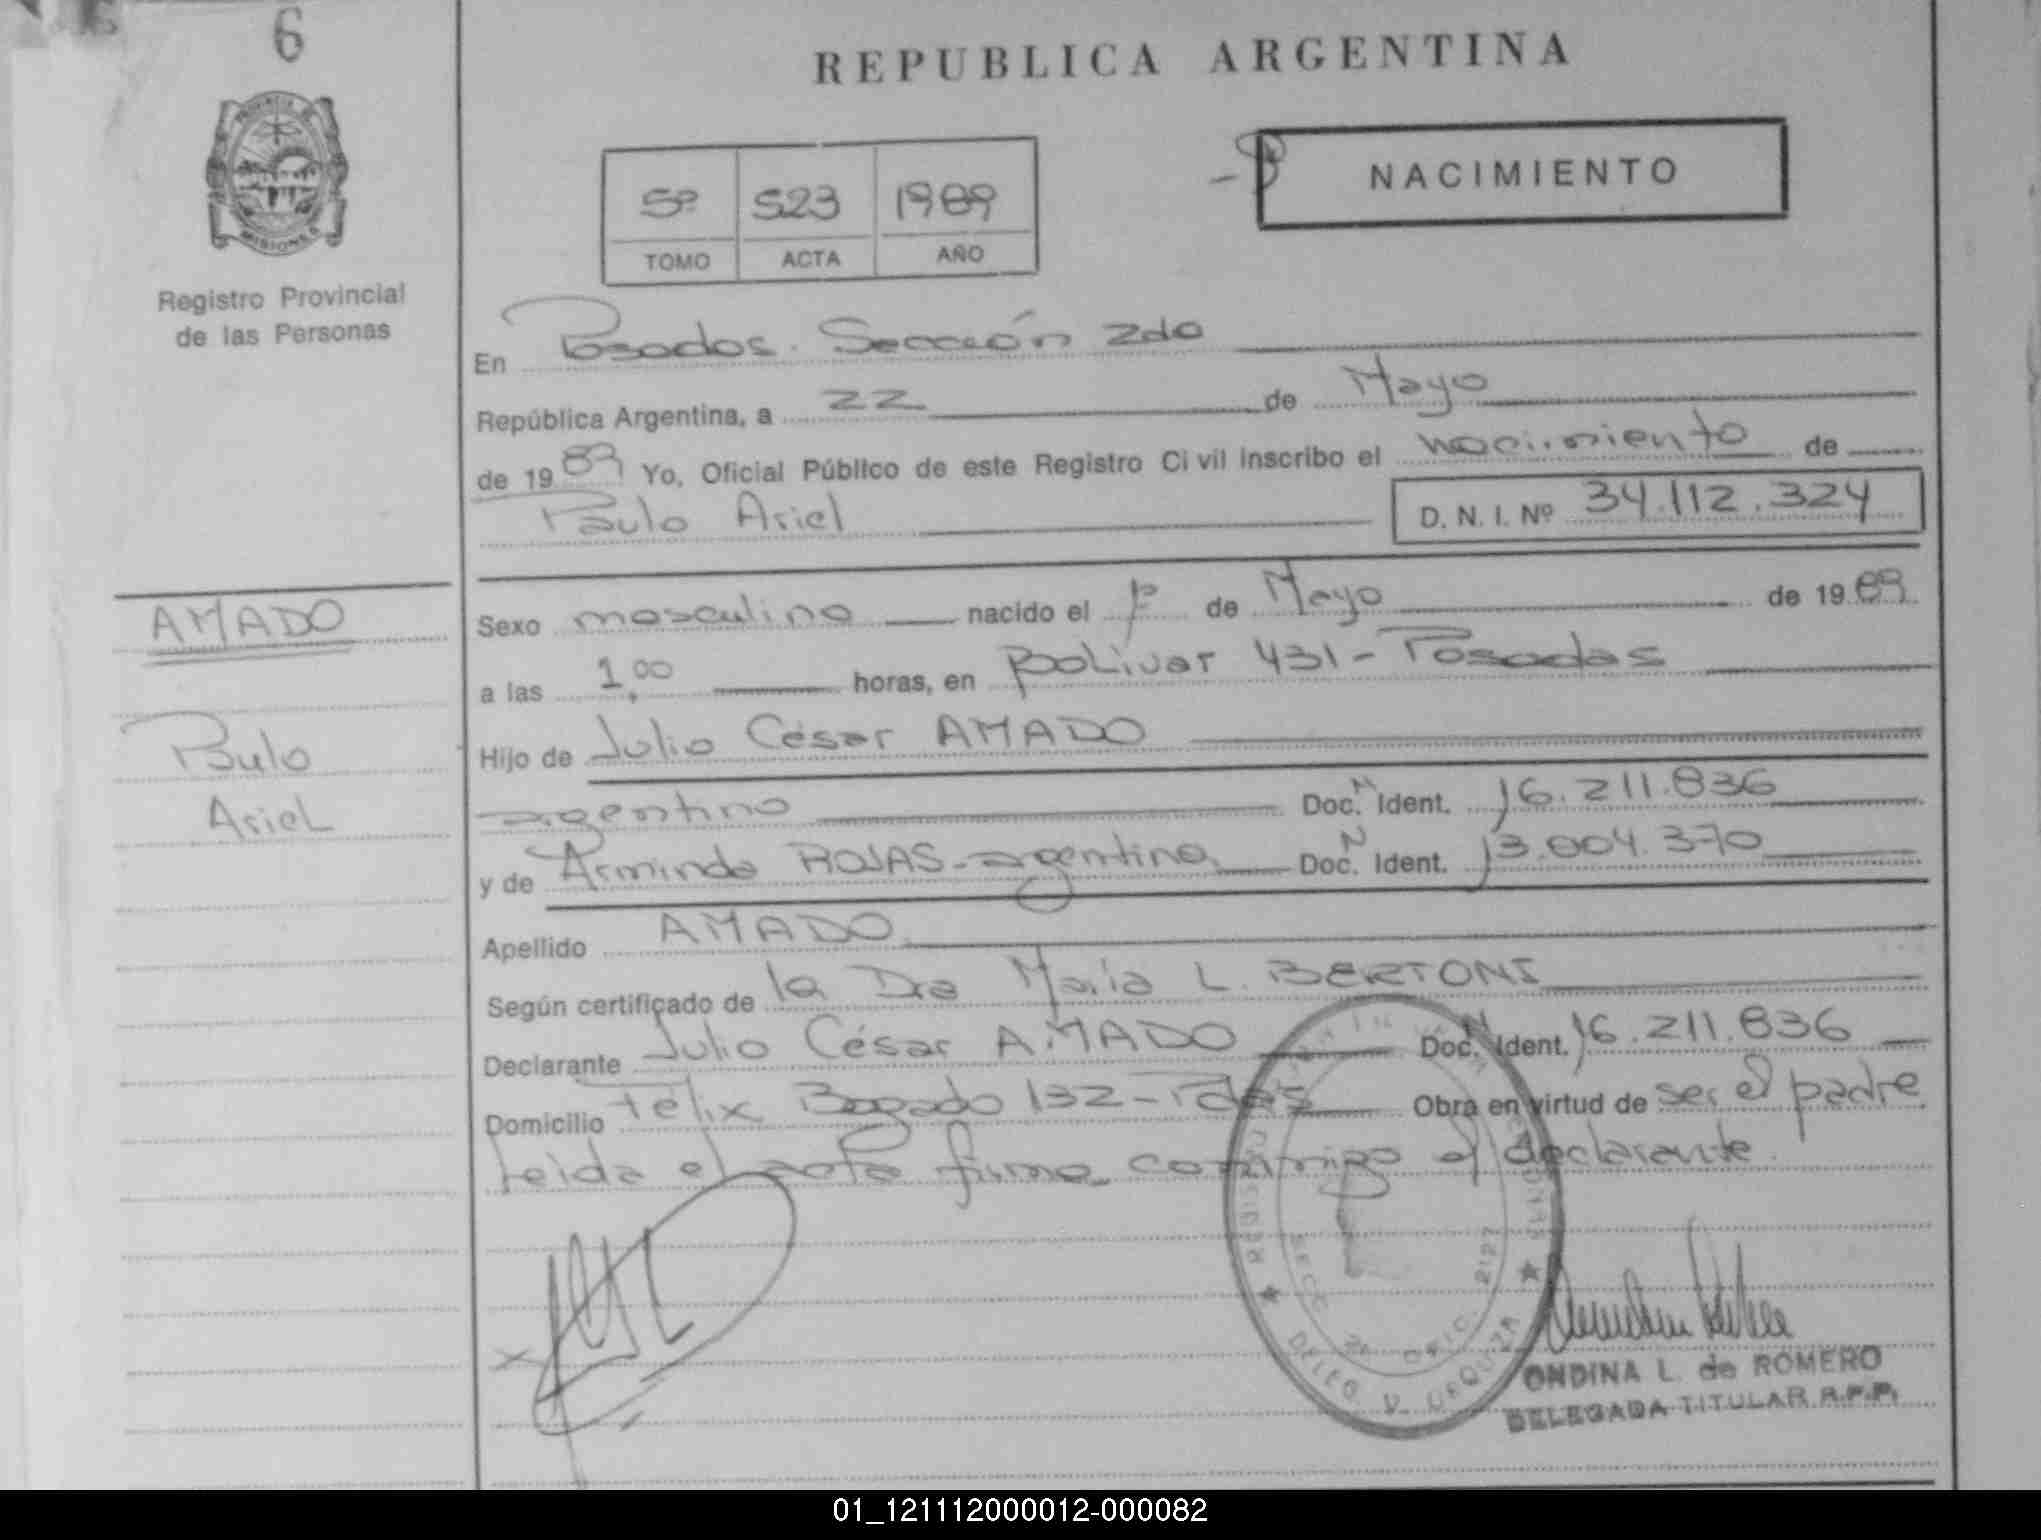 6
REPUBLICA ARGENTINA
PROVINCIA DE
MISIONES
Registro Provincial
de las Personas
5º 523 1989
TOMO ACTA AÑO
NACIMIENTO
En Posadas. Sección 2da
República Argentina, a 22 de Mayo
de 1989 Yo, Oficial Público de este Registro Civil inscribo el nacimiento de
Paulo Ariel D. N. I. Nº 34.112.324
AMADO
Paulo
Ariel
Sexo masculino nacido el 1º de Mayo de 1989
a las 1,00 horas, en Bolívar 431 - Posadas
Hijo de Julio César AMADO
argentino Doc. N Ident. 16.211.836
y de Arminda ROJAS - argentina Doc. N Ident. 13.004.370
Apellido AMADO
Según certificado de la Dra María L. BERTONI
Declarante Julio César AMADO Doc. N Ident. 16.211.836
Domicilio Félix Bogado 132 - Pdas Obra en virtud de ser el padre
Leida el acta firma conmigo el declarante
SECC 2ª OFIC 2127
DELEG V. URQUIZA
ONDINA L. de ROMERO
DELEGADA TITULAR R.P.P.
01_121112000012-000082